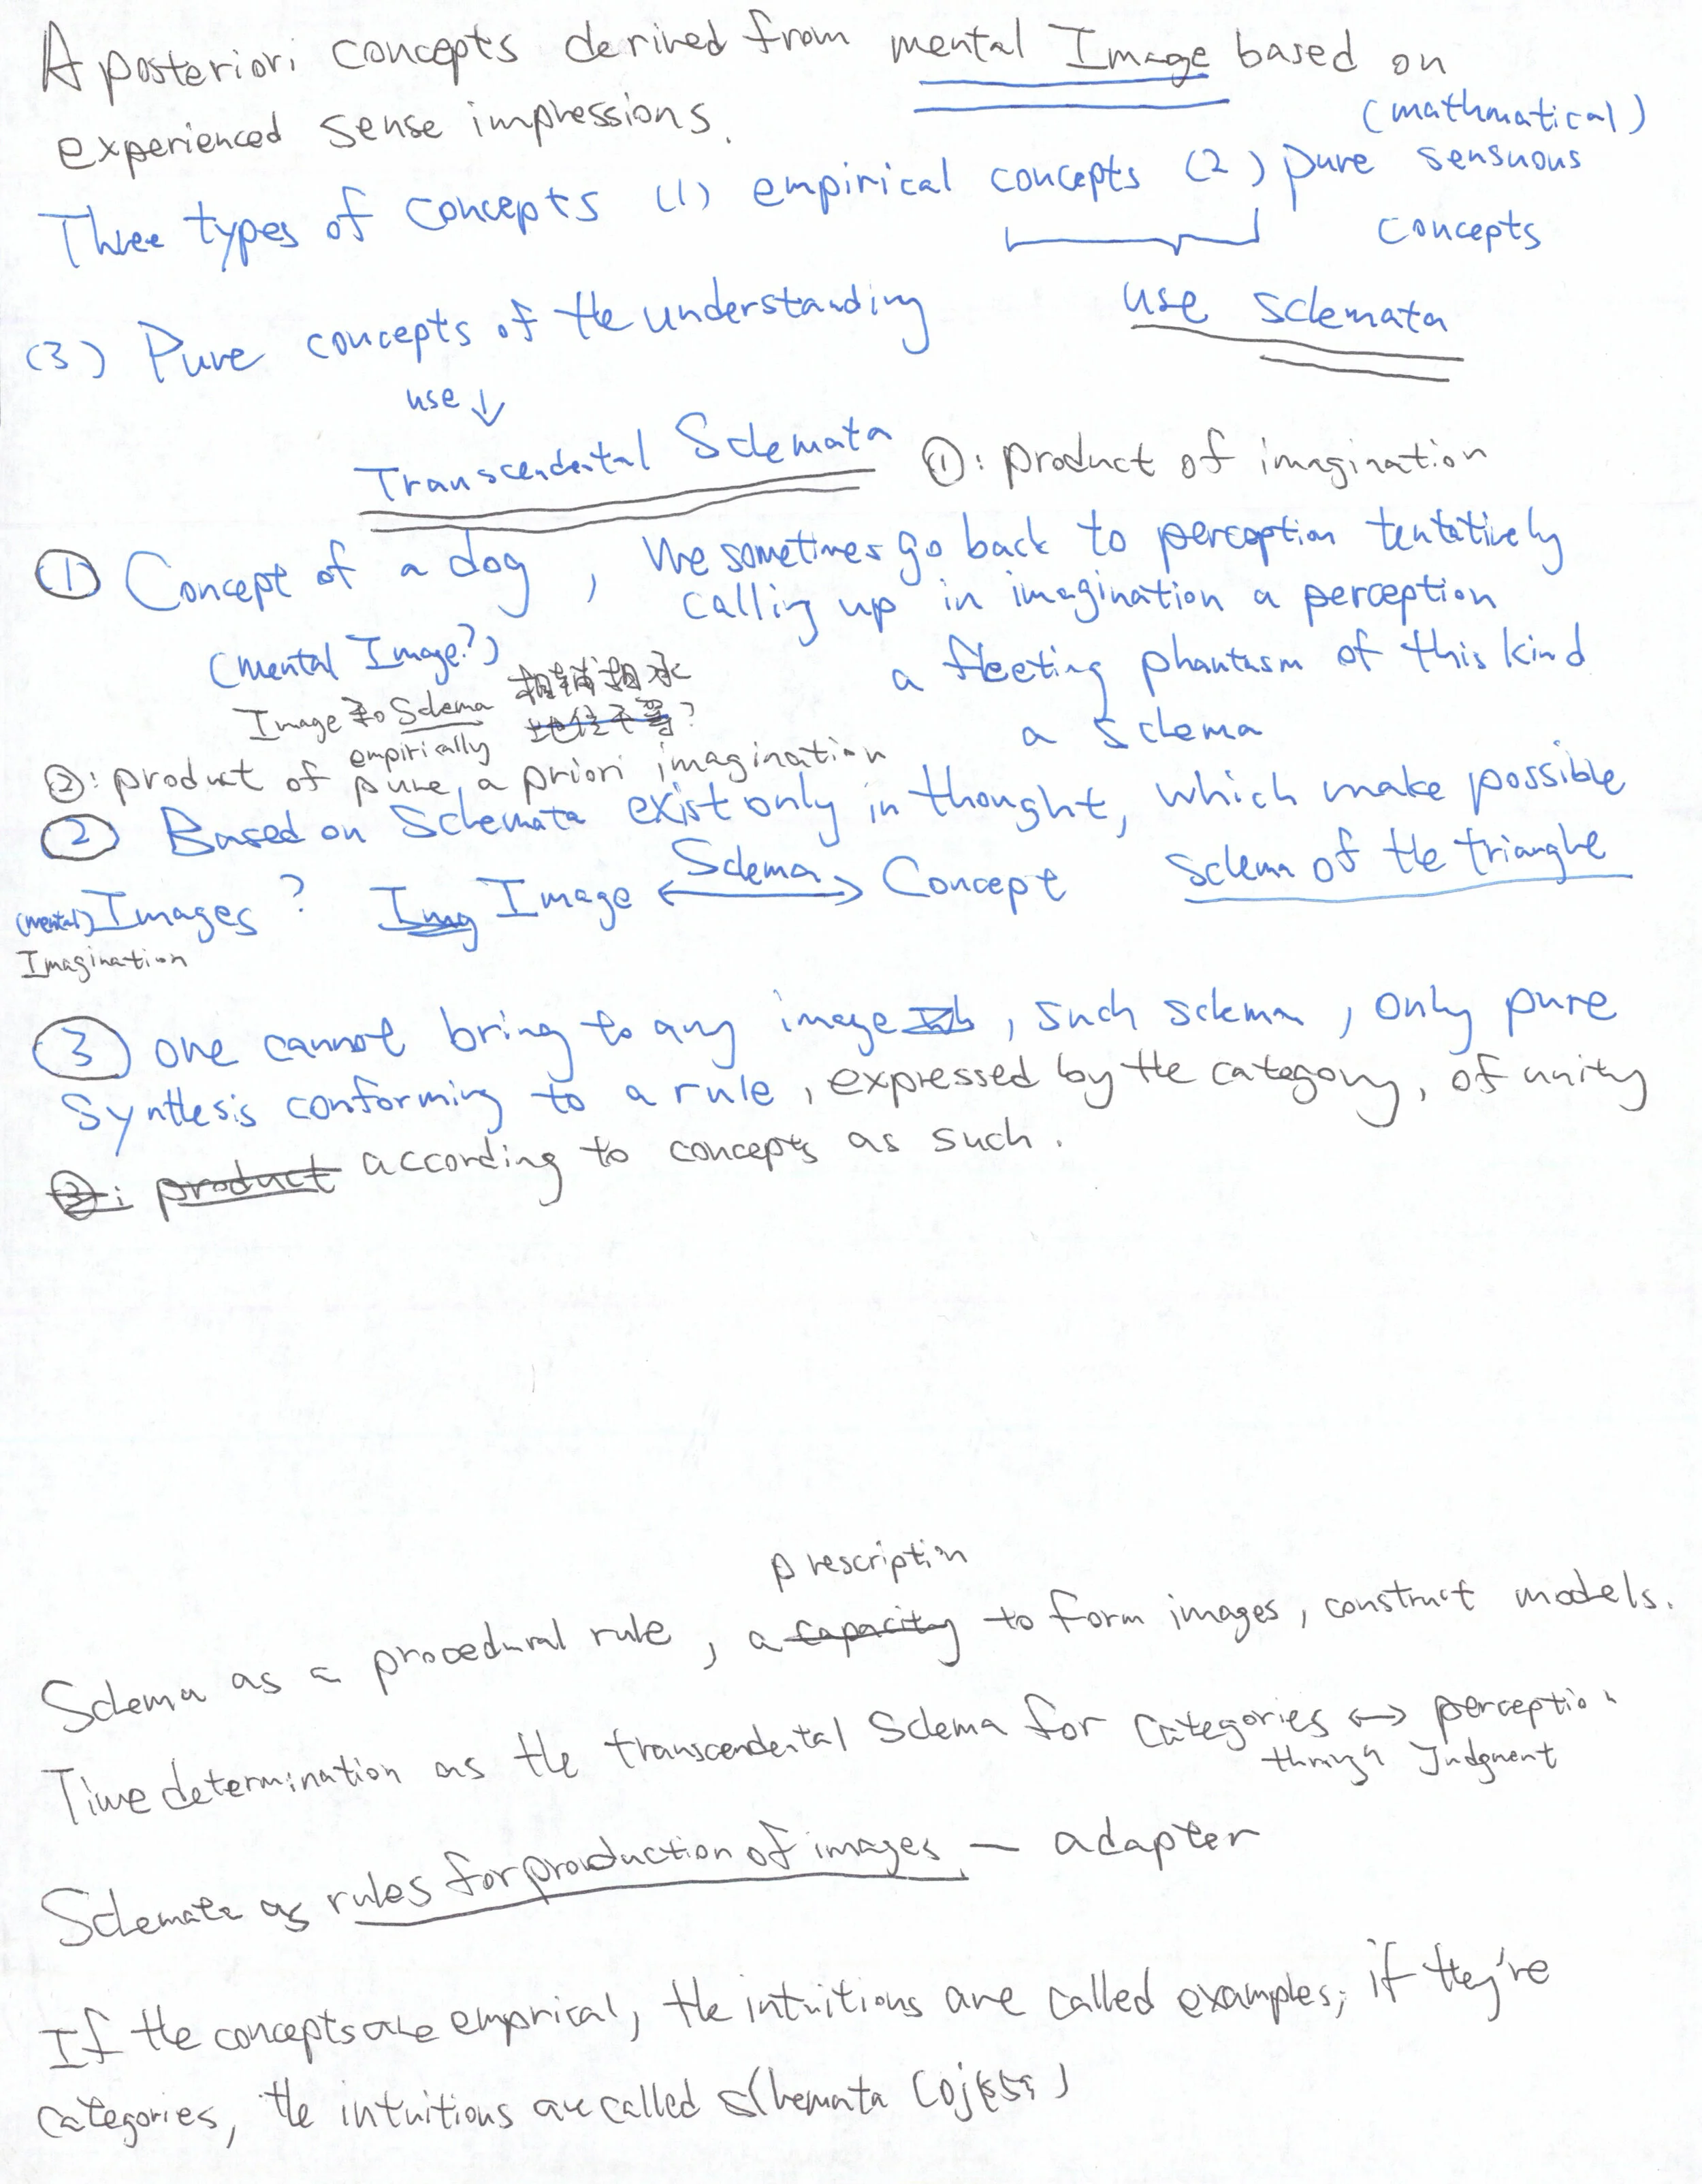 A posteriori concepts derived from mental Image based on
experienced sense impressions.
(mathmatical)
Three types of concepts (1) empirical concepts (2) pure sensuous
concepts
use schemata
(3) Pure concepts of the understanding
use ↓
Transcendental Schemata
①: product of imagination
① Concept of a dog, We sometimes go back to perception tentatively
calling up in imagination a perception
(mental Image?)
a fleeting phantasm of this kind
Image和Schema
地位不等?
a schema
empirically
②: product of pure, a priori imagination
② Based on Schemata exist only in thought, which make possible
(mental) Images? Img Image ←Schema→ Concept schema of the triangle
Imagination
③ one cannot bring to any image, such schema, only pure
Synthesis conforming to a rule, expressed by the category, of unity
③: product according to concepts as such.
prescription
Schema as a procedural rule, a capacity to form images, construct models.
Time determination as the transcendental Schema for Categories ↔ perception
through Judgment
Schemate as rules for production of images — adapter
If the concepts are emprical, the intuitions are called examples; if they're
categories, the intuitions are called schemata